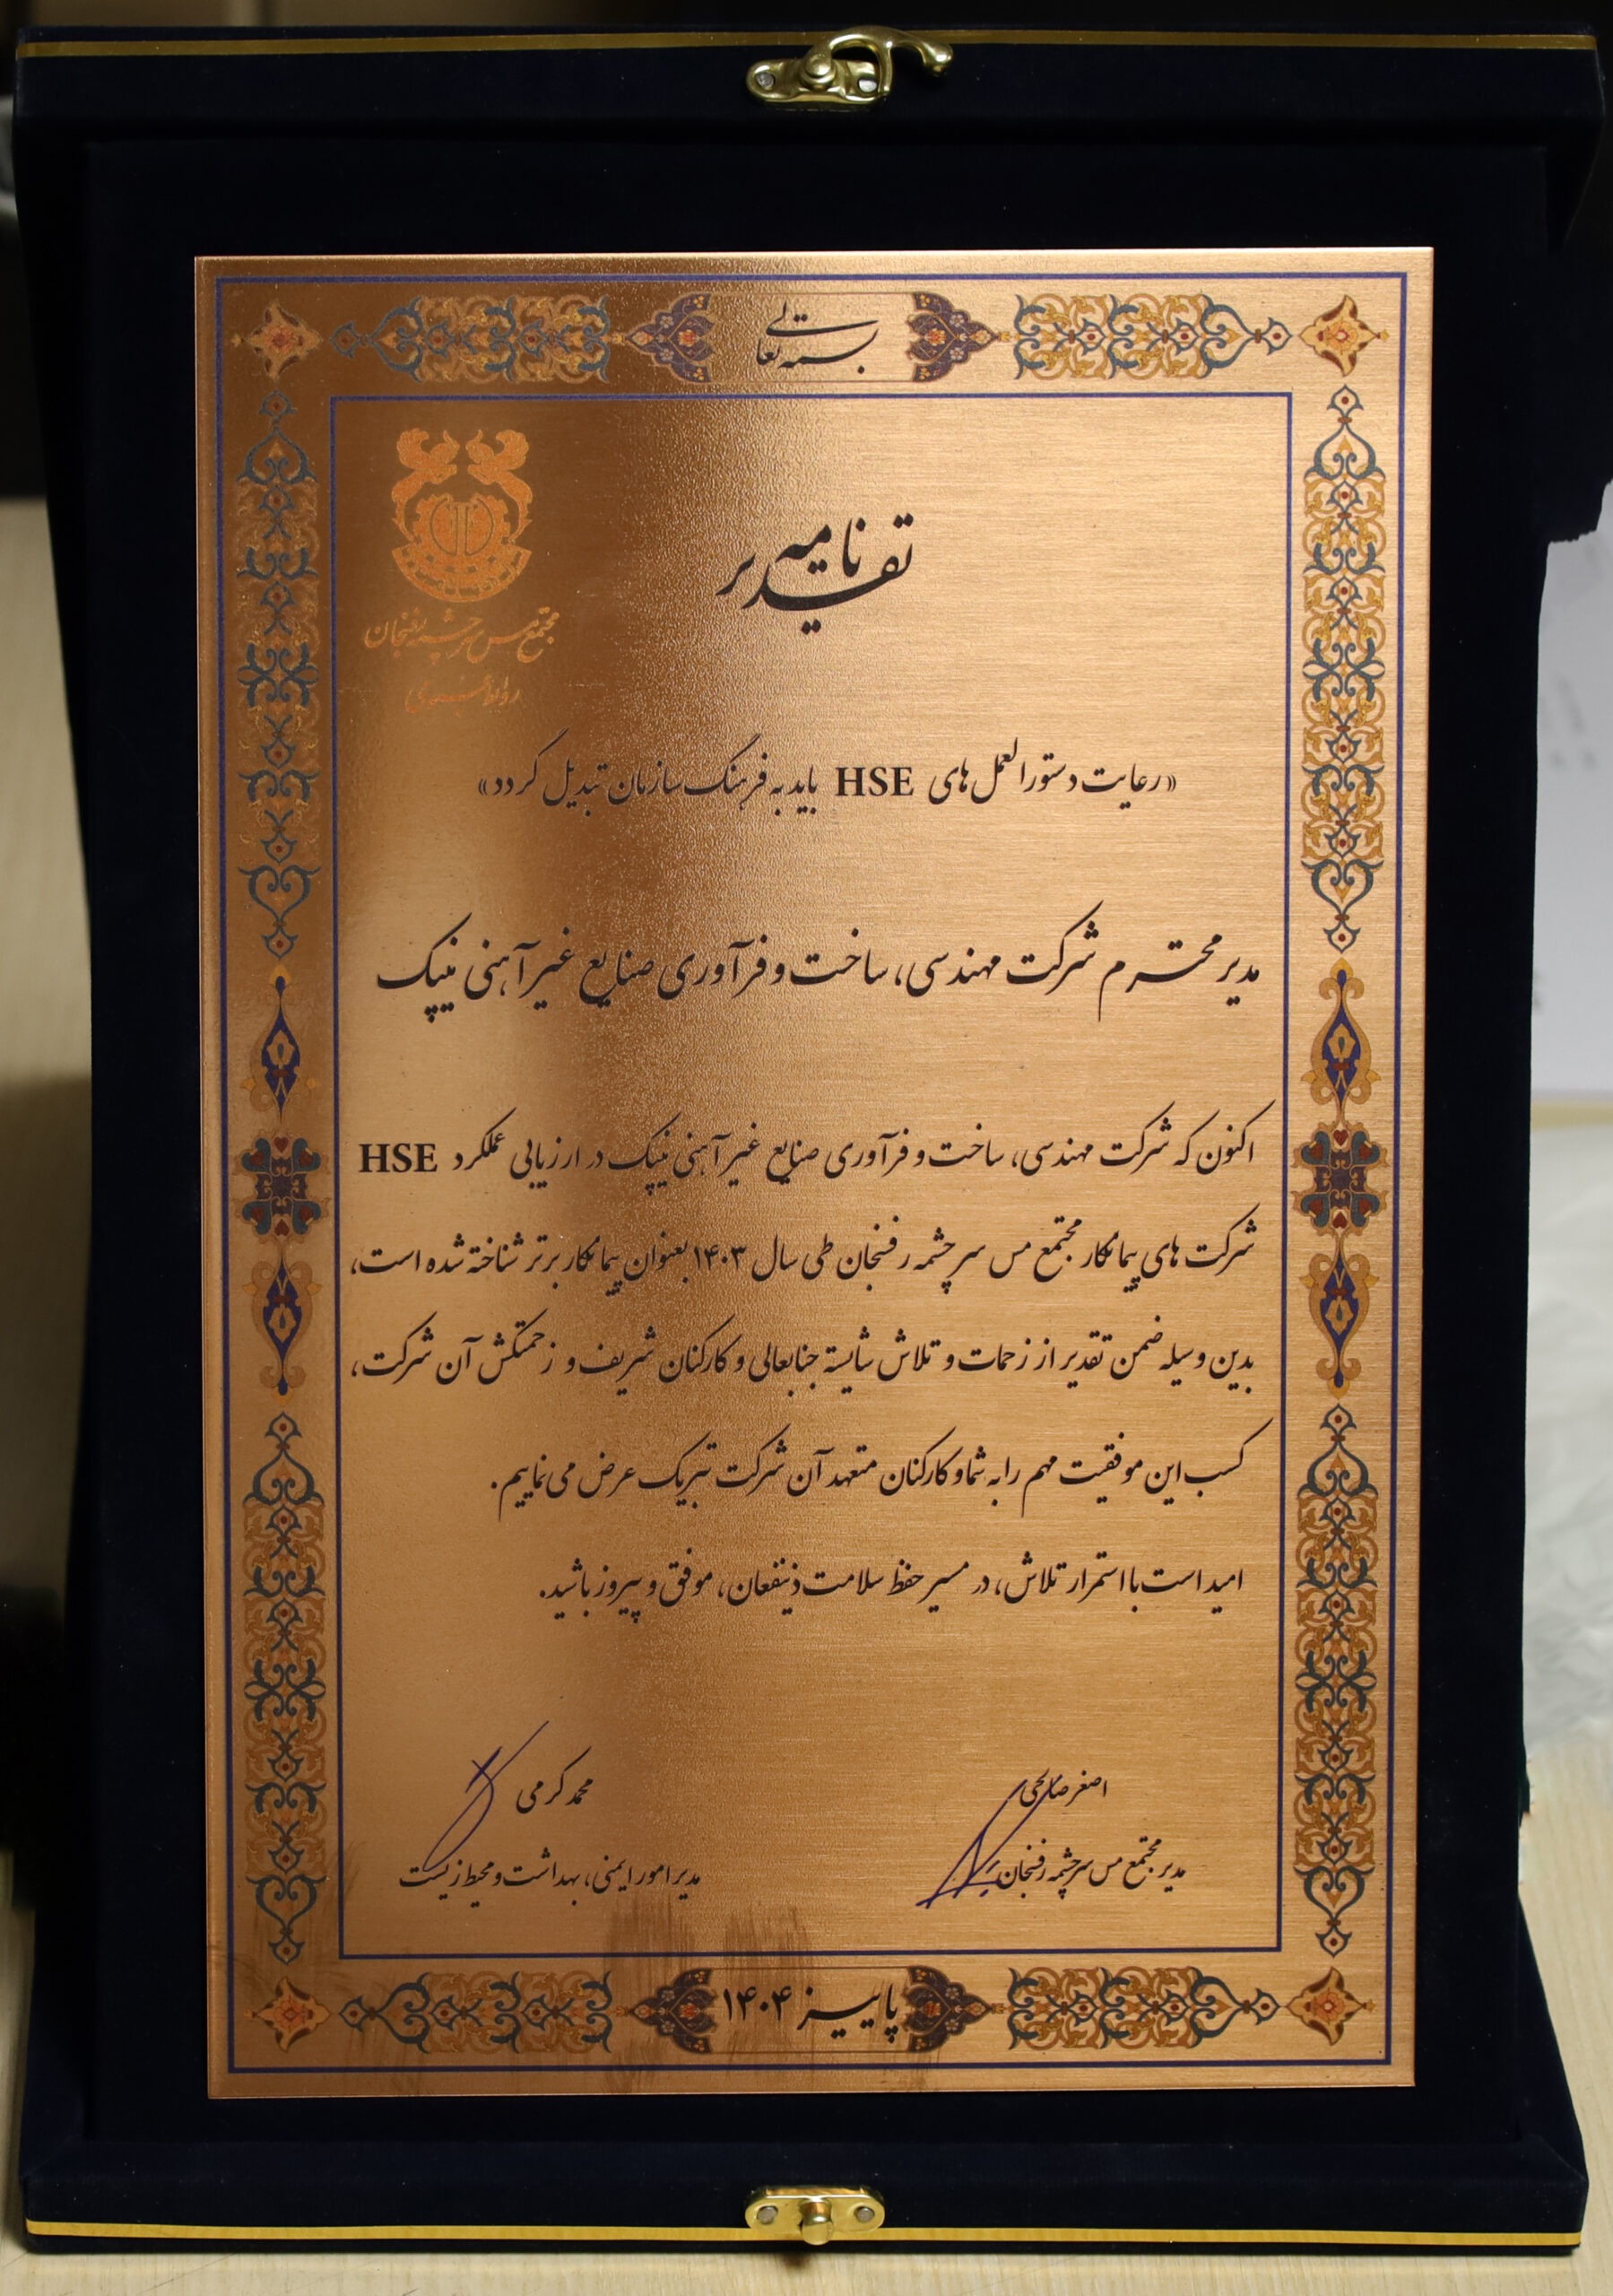 بسمه تعالی
مجتمع مس سرچشمه رفسنجان
روابط عمومی
تقدیرنامه
«رعایت دستورالعمل های HSE باید به فرهنگ سازمان تبدیل گردد»
مدیر محترم شرکت مهندسی، ساخت و فرآوری صنایع غیر آهنی نیپک
اکنون که شرکت مهندسی، ساخت و فرآوری صنایع غیر آهنی نیپک در ارزیابی عملکرد HSE
شرکت های پیمانکار مجتمع مس سرچشمه رفسنجان طی سال ۱۴۰۳ بعنوان پیمانکار برتر شناخته شده است،
بدین وسیله ضمن تقدیر از زحمات و تلاش شایسته جنابعالی و کارکنان شریف و زحمتکش آن شرکت،
کسب این موفقیت مهم را به شما و کارکنان متعهد آن شرکت تبریک عرض می نماییم.
امید است با استمرار تلاش، در مسیر حفظ سلامت ذینفعان، موفق و پیروز باشید.
اصغر صالحی
مدیر مجتمع مس سرچشمه رفسنجان
محمد کرمی
مدیر امور ایمنی، بهداشت و محیط زیست
پاییز ۱۴۰۴